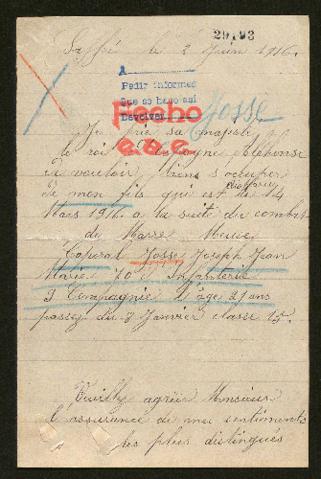 29193
Saffré le 2 Juin 1916.
A
Pedir informes
Que se hace así
Devolver
Fecho
Josse
Je prie sa majesté
le roi d'Espagne Alphonse
de vouloir biens s'occuper
de mon fils qui est
Mars 1916. a la suite du combat
du Meuse
Caporal Josse Joseph Jean
Marie 70e Infanterie
9 Compagnie l'age 21 ans
passez du 8 Janvier classe 15.
Veuillez agréer Monsieur
l'assurance de mes sentiments
les plus distingués